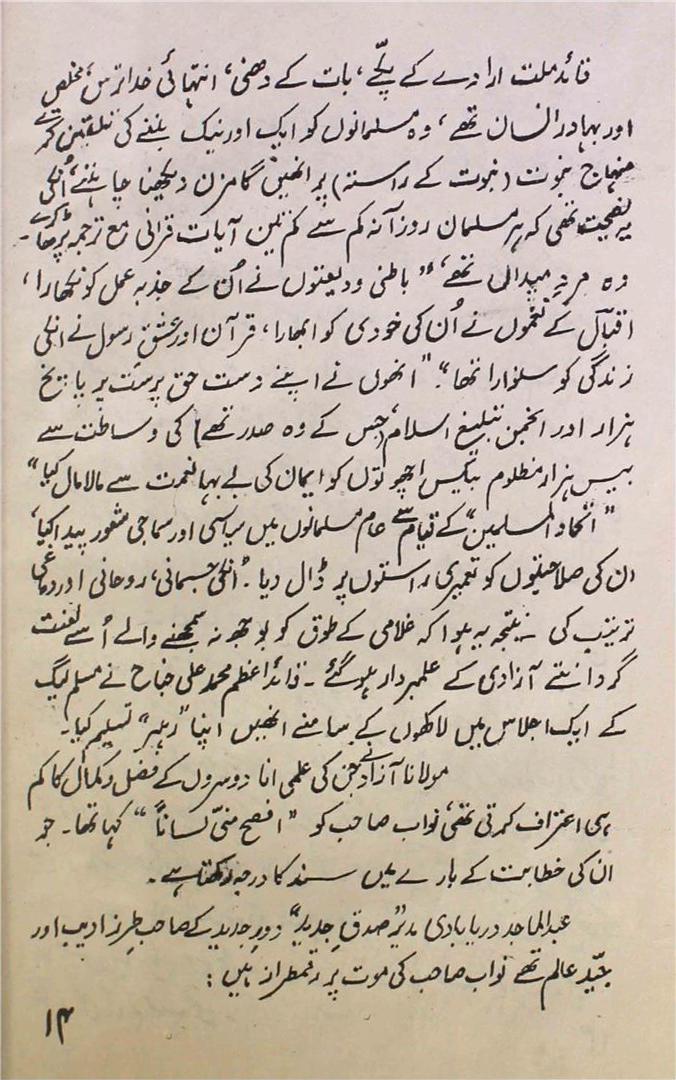 قائد ملت ارادے کے پکّے، بات کے دھنی، انتہائی خدا ترس، مخلص
اور بہادر انسان تھے، وہ مسلمانوں کو ایک اور نیک بننے کی تلقین کرتے
منہاج نبوت (نبوت کے راستہ) پر انھیں گامزن دیکھنا چاہتے، اُنکی
یہ نصیحت تھی کہ ہر مسلمان روزآنہ کم سے کم تین آیات قرانی مع ترجمہ پڑھا کرے۔
وہ مردِ میدانی تھے، " باطنی ودیعتوں نے اُن کے جذبہ عمل کو نکھارا،
اقبال کے نغموں نے اُن کی خودی کو ابھارا، قرآن اور عشقِ رسول نے انکی
زندگی کو سنوارا تھا"۔ "انھوں نے اپنے دست حق پرست پر پانچ
ہزار اور انجمن تبلیغ اسلام (جس کے وہ صدر تھے) کی وساطت سے
بیس ہزار مظلوم بیکس اچھوتوں کو ایمان کی بے بہا نعمت سے مالا مال کیا"
"اتحاد المسلمین" کے قیام سے عام مسلمانوں میں سیاسی اور سماجی شعور پیدا کیا،
ان کی صلاحیتوں کو تعمیری راستوں پر ڈال دیا۔ اُنکی جسمانی، روحانی اور دماغی
تربیت کی۔ نتیجہ یہ ہوا کہ غلامی کے طوق کو بوجھ نہ سمجھنے والے اُسے لعنت
گردانتے آزادی کے علمبردار ہو گئے۔ قائد اعظم محمد علی جناح نے مسلم لیگ
کے ایک اجلاس میں لاکھوں کے سامنے انھیں اپنا "رہبر" تسلیم کیا۔
مولانا آزاد نے جن کی علمی انا دوسروں کے فضل و کمال کا کم
ہی اعتراف کرتی تھی، نواب صاحب کو "افصح منّی لساناً" کہا تھا۔ جو
ان کی خطابت کے بارے میں سند کا درجہ رکھتا ہے۔
عبدالماجد دریابادی مدیر "صدقِ جدید" دورِ جدید کے صاحبِ طرز ادیب اور
جیّد عالم تھے نواب صاحب کی موت پر رقمطراز ہیں :
۱۴